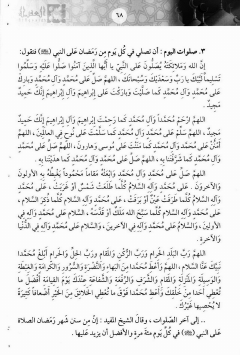 ٦٨
٣. صلوات اليوم : أن تصلي في كُلّ يَوم مِن رَمَضان عَلى النبي (ﷺ) فتقول:
إنّ اللهَ وَمَلائِكَتَهُ يُصَلّونَ عَلى النَبِيّ يا أيُّها الَّذِينَ آمَنُوا صَلُّوا عَلَيْهِ وَسَلِّمُوا
تَسْلِيماً لَبَّيْكَ يا رَبِّ وَسَعْدَيْكَ وَسُبْحانَكَ، اللهُمَّ صَلِّ عَلى مُحَمَّدٍ وَآلِ مُحَمَّدٍ وَبارِكْ
عَلى مُحَمَّدٍ وَآلِ مُحَمَّدٍ كَما صَلَّيْتَ وَبارَكْتَ عَلى إبْراهِيمَ وَآلِ إبْراهِيمَ إنَّكَ حَمِيدٌ
مَجِيدٌ.
اللهُمَّ ارْحَمْ مُحَمَّداً وَآلَ مُحَمَّدٍ كَما رَحِمْتَ إبْراهِيمَ وَآلَ إبْراهِيمَ إنَّكَ حَمِيدٌ
مَجِيدٌ. اللهُمَّ سَلِّمْ عَلى مُحَمَّدٍ وَآلِ مُحَمَّدٍ كَما سَلَّمْتَ عَلى نُوحٍ فِي العالَمِينَ، اللهُمَّ
امْنُنْ عَلى مُحَمَّدٍ وَآلِ مُحَمَّدٍ كَما مَنَنْتَ عَلى مُوسى وَهارُونَ، اللهُمَّ صَلِّ عَلى مُحَمَّدٍ
وَآلِ مُحَمَّدٍ كَما شَرَّفْتَنا بِهِ، اللهُمَّ صَلِّ عَلى مُحَمَّدٍ وَآلِ مُحَمَّدٍ كَما هَدَيْتَنا بِهِ.
اللهُمَّ صَلِّ عَلى مُحَمَّدٍ وَآلِ مُحَمَّدٍ وَابْعَثْهُ مَقاماً مَحْمُوداً يَغْبِطُهُ بِهِ الأوَّلُونَ
وَالآخِرُونَ. عَلى مُحَمَّدٍ وَآلِهِ السَّلامُ كُلَّما طَلَعَتْ شَمْسٌ أوْ غَرَبَتْ، عَلى مُحَمَّدٍ وَآلِهِ
السَّلامُ كُلَّما طَرَفَتْ عَيْنٌ أوْ بَرَقَتْ، عَلى مُحَمَّدٍ وَآلِهِ السَّلامُ كُلَّما ذُكِرَ السَّلامُ،
عَلى مُحَمَّدٍ وَآلِهِ السَّلامُ كُلَّما سَبَّحَ اللهَ مَلَكٌ أوْ قَدَّسَهُ، السَّلامُ عَلى مُحَمَّدٍ وَآلِهِ فِي
الأوَّلِينَ، وَالسَّلامُ عَلى مُحَمَّدٍ وَآلِهِ فِي الآخِرِينَ، وَالسَّلامُ عَلى مُحَمَّدٍ وَآلِهِ فِي الدُّنْيا
وَالآخِرَةِ.
اللهُمَّ رَبَّ البَلَدِ الحَرامِ وَرَبَّ الرُّكْنِ وَالمَقامِ وَرَبَّ الحِلِّ وَالحَرامِ أبْلِغْ مُحَمَّداً
نَبِيَّكَ عَنَّا السَّلامَ، اللهُمَّ وَأعْطِ مُحَمَّداً مِنَ البَهاءِ وَالنَّضْرَةِ وَالسُّرُورِ وَالكَرامَةِ وَالغِبْطَةِ
وَالوَسِيلَةِ وَالمَنْزِلَةِ وَالمَقامِ وَالشَّرَفِ وَالرِّفْعَةِ وَالشَّفاعَةِ عِنْدَكَ يَوْمَ القِيامَةِ أفْضَلَ ما
تُعْطِي أحَداً مِنْ خَلْقِكَ، وَأعْطِ مُحَمَّداً فَوْقَ ما تُعْطِي الخَلائِقَ مِنَ الخَيْرِ أضْعافاً كَثِيرَةً
لا يُحْصِيها غَيْرُكَ.
... إلى آخر الصلوات. وقال الشيخ المفيد : إنّ مِن سنن شَهر رَمَضان الصلاة
عَلى النَبي (ﷺ) في كُلّ يَوم مئة مرة والأفضل أن يزيد عليها.